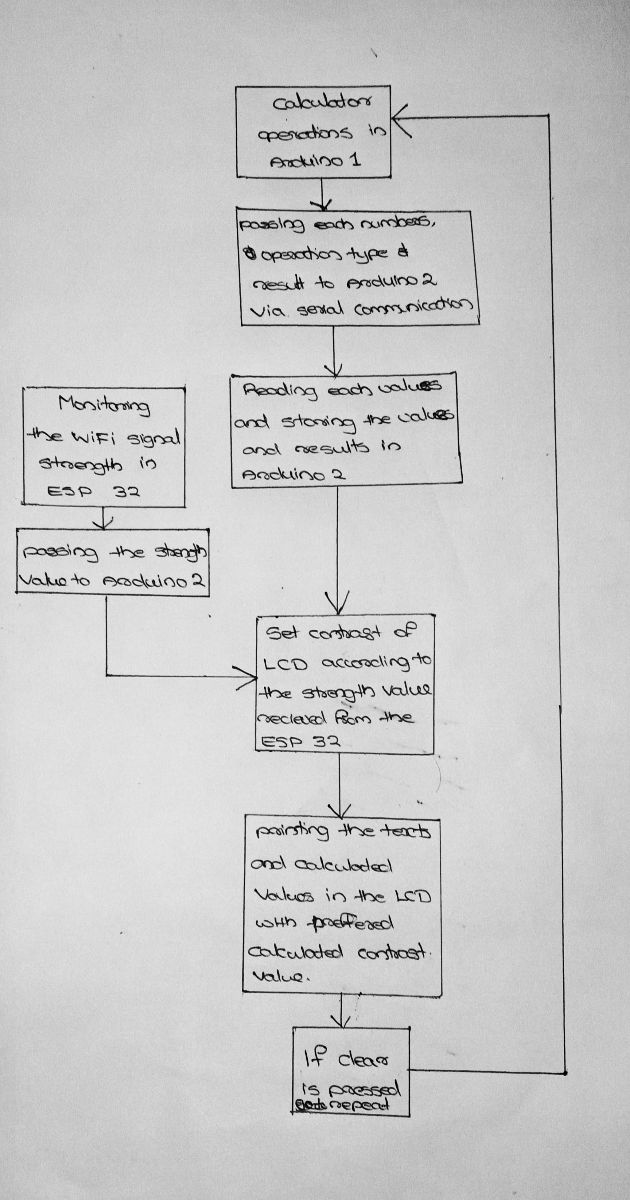 Calculator
operations in
Arduino 1
passing each numbers,
operation type &
result to Arduino 2
via serial communication
Reading each values
and storing the values
and results in
Arduino 2
Monitoring
the WiFi signal
strength in
ESP 32
passing the strength
value to Arduino 2
Set contrast of
LCD according to
the strength value
recieved from the
ESP 32
printing the texts
and calculated
values in the LCD
with preffered
calculated contrast
value.
If clear
is pressed
repeat